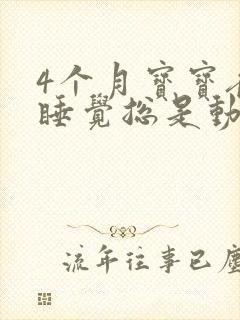 4个月寶寶
睡覺總是動
流年往事已塵